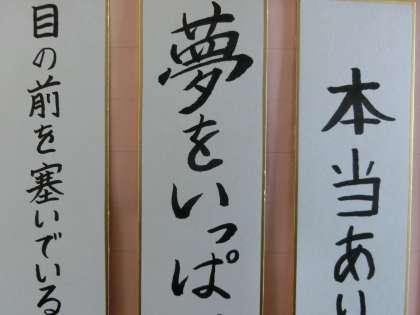 本当あり
夢をいっぱ
目の前を塞いでいる